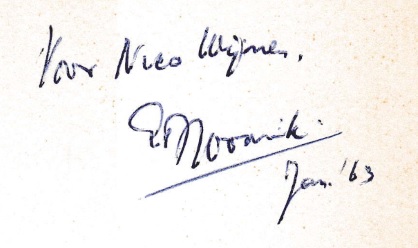 Voor Nico Wijnen.
E. Hoornik.
Jan. '63